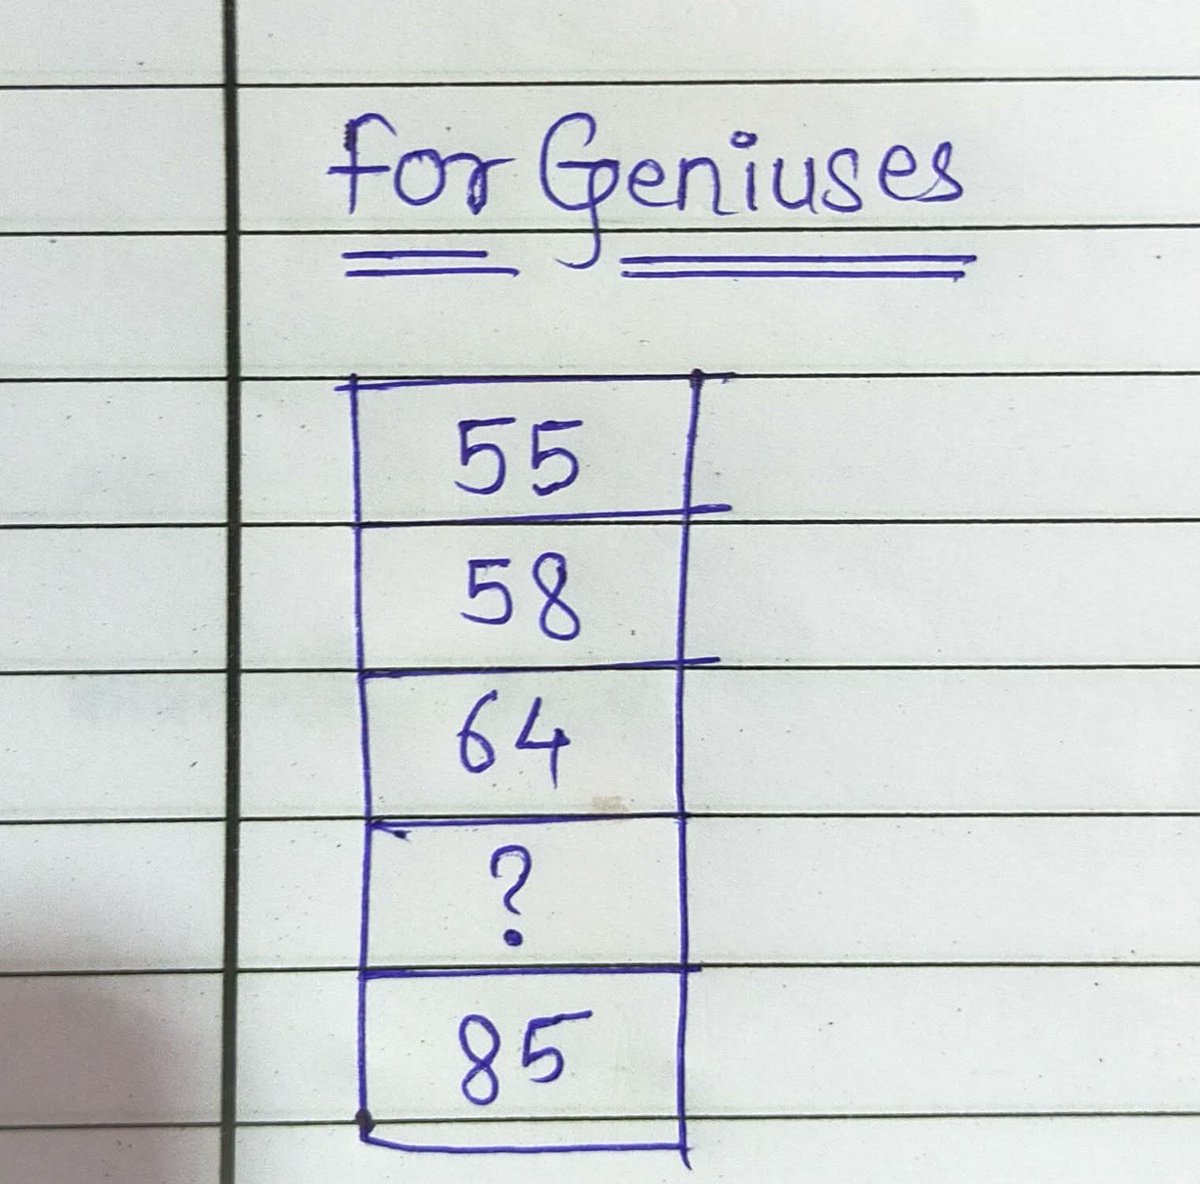 For Geniuses
55
58
64
?
85